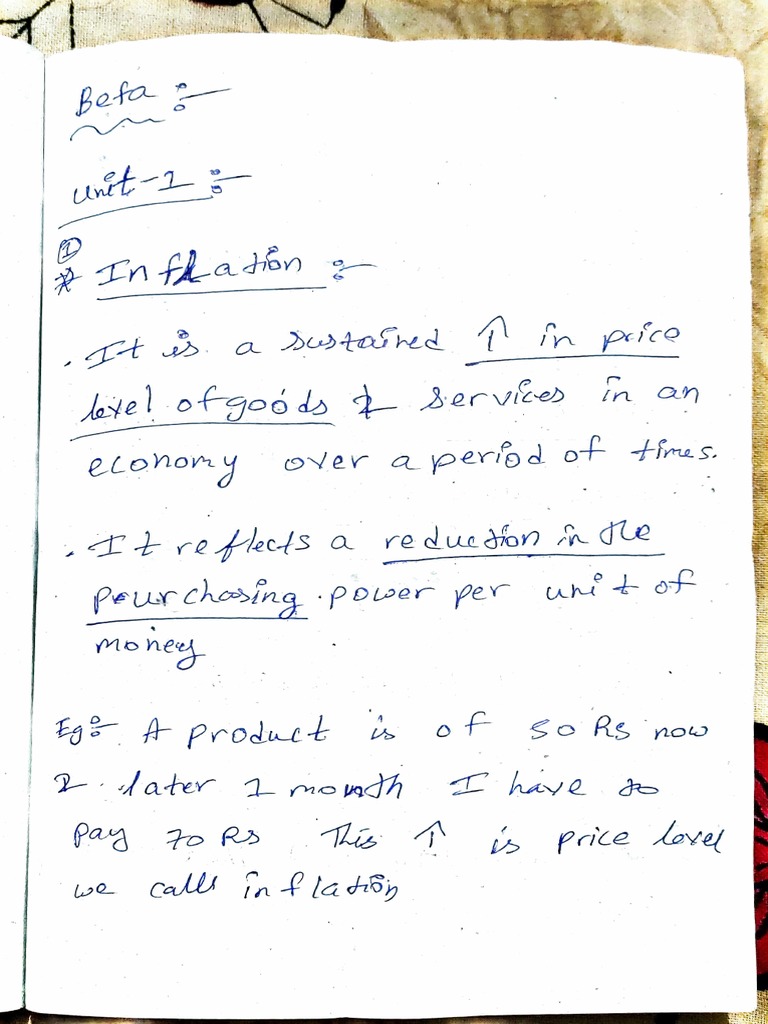 Befa :-
unit-1 :-
①
* Inflation :-
. It is a sustained ↑ in price
level of goods & services in an
economy over a period of times.
. It reflects a reduction in the
pourchasing power per unit of
money
Eg:- A product is of 50 Rs now
& later 1 month I have to
pay 70 Rs This ↑ is price level
we calls inflation